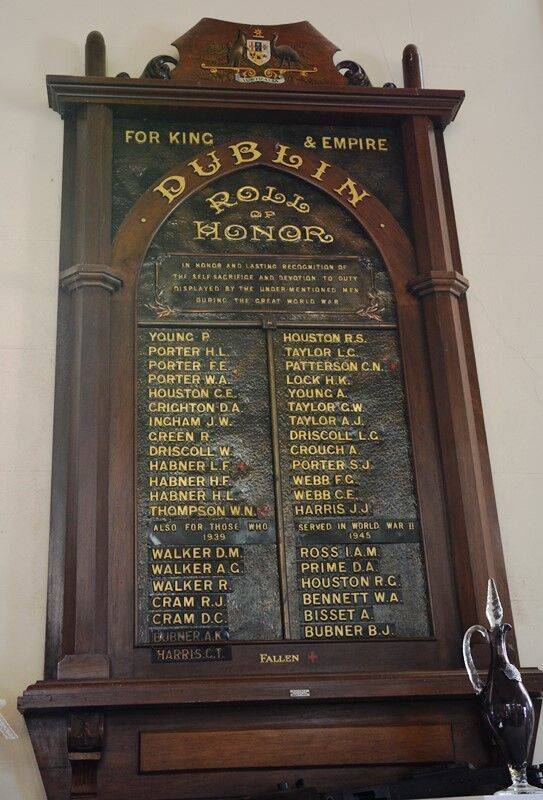 FOR KING & EMPIRE
DUBLIN
ROLL
OF
HONOR
IN HONOR AND LASTING RECOGNITION OF
THE SELF-SACRIFICE AND DEVOTION TO DUTY
DISPLAYED BY THE UNDER-MENTIONED MEN
DURING THE GREAT WORLD WAR
YOUNG P.
PORTER H.L.
PORTER F.E.
PORTER W.A.
HOUSTON C.E.
CRIGHTON D.A.
INGHAM J.W.
GREEN R.
DRISCOLL W.
HABNER L.F.
HABNER H.F.
HABNER H.L.
THOMPSON W.N.
HOUSTON R.S.
TAYLOR L.C.
PATTERSON C.N.
LOCK H.K.
YOUNG A.
TAYLOR G.W.
TAYLOR A.J.
DRISCOLL L.G.
CROUCH A.
PORTER S.J.
WEBB F.G.
WEBB C.E.
HARRIS J.J.
ALSO FOR THOSE WHO
1939
SERVED IN WORLD WAR II
1945
WALKER D.M.
WALKER A.G.
WALKER R.
CRAM R.J.
CRAM D.C.
BUBNER A.K.
HARRIS C.T.
ROSS I.A.M.
PRIME D.A.
HOUSTON R.G.
BENNETT W.A.
BISSET A.
BUBNER B.J.
FALLEN